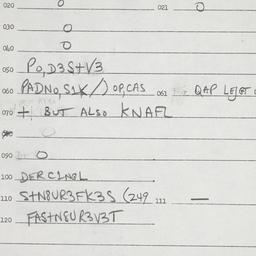 020 O 021 O
030 O
040 O
050 PO,D3S+V3
060 PADNO,S1K/) OP,CAS 061 QAP LEJET
070 +, BUT ALSO KNAFL
090 O
100 DERC1NGL
110 S+N8UR3FK3S (249 111 —
120 FAS+N8UR3V3T